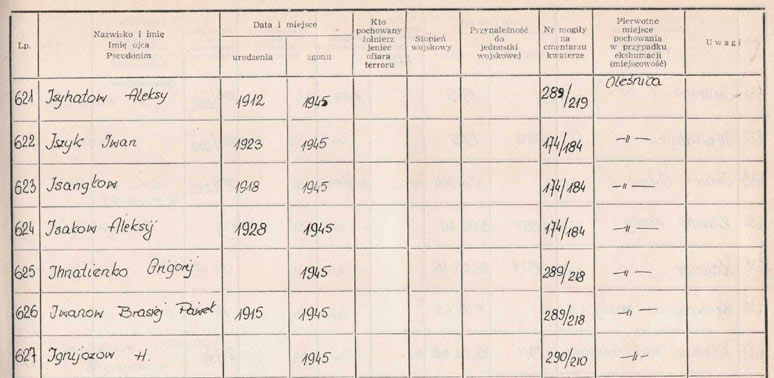 Lp. Nazwisko i imię Imię ojca Pseudonim Data i miejsce urodzenia zgonu Kto pochowany żołnierz jeniec ofiara terroru Stopień wojskowy Przynależność do jednostki wojskowej Nr mogiły na cmentarzu kwaterze Pierwotne miejsce pochowania w przypadku ekshumacji (miejscowość) Uwagi
621 Isyhatow Aleksy 1912 1945 289/219 Oleśnica
622 Iszyk Iwan 1923 1945 174/184 -"-
623 Isangłow 1918 1945 174/184 -"-
624 Isakow Aleksij 1928 1945 174/184 -"-
625 Ihnatienko Grigorij 1945 289/218 -"-
626 Iwanow Brasiej Paweł 1915 1945 289/218 -"-
627 Ignijozow H. 1945 290/210 -"-